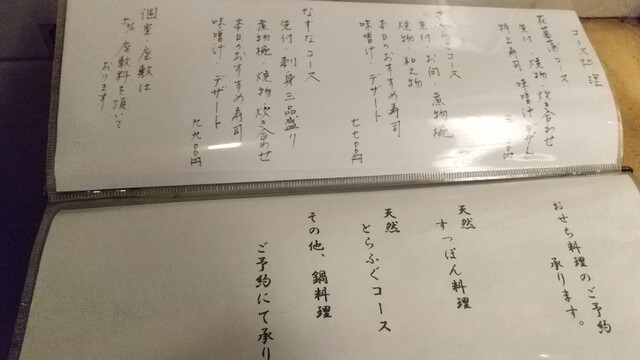 コース料理
花菖蒲コース
先付・焼物・炊き合わせ
特上寿司 味噌汁・デザート
コース
先付・お向・煮物椀
焼物・和え物
本日のおすすめ寿司
味噌汁・デザート
七七〇〇円
なすなコース
先付・刺身三品盛り
煮物椀・焼物・炊き合わせ
本日のおすすめ寿司
味噌汁・デザート
九九〇〇円
個室座敷は
座敷料を頂いて
おります。
おせち料理のご予約
承ります。
天然
すっぽん料理
天然
とらふぐコース
その他、鍋料理
ご予約にて承り